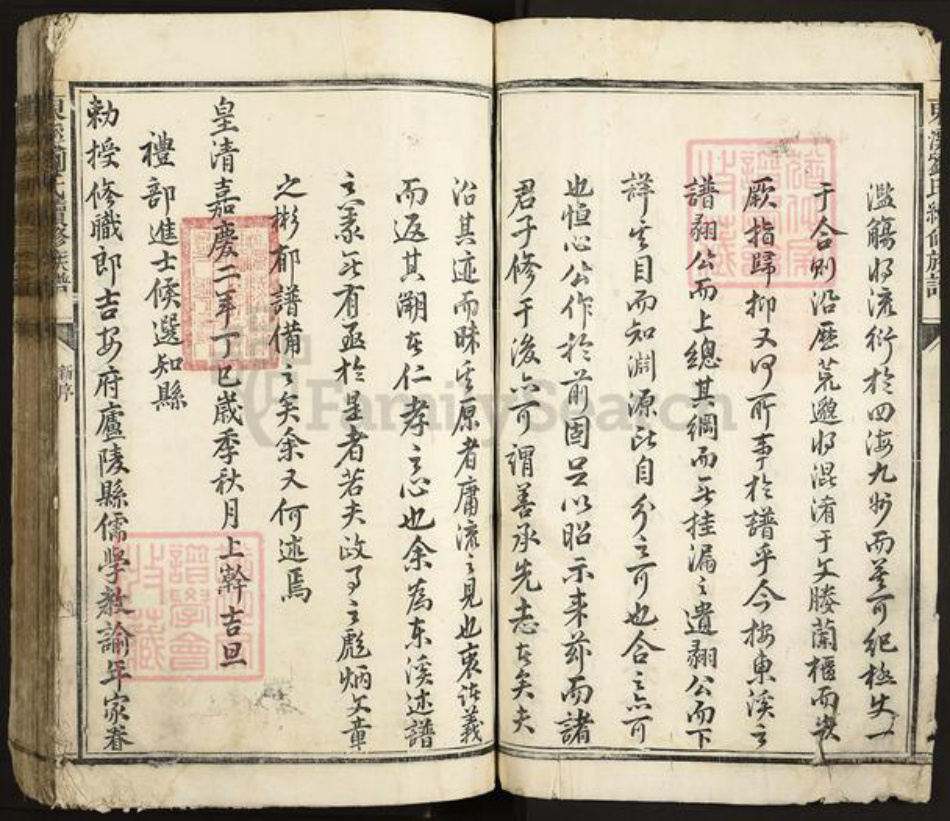 濫觴將流衍於四海九州而莫可紀極失一
于合則沿歷荒邈將混淆于文媵蘭櫃而失
厥指歸抑又何所事於譜乎今按東溪之
譜翱公而上總其綱而無挂漏之遺翱公而下
詳其目而知淵源所自分之可也合之亦可
也恒心公作於前固足以昭示來茲而諸
君子修于後亦可謂善承先志者矣夫
沿其迹而昧其原者庸流之見也衷諸義
而返其溯者仁孝之心也余為東溪述譜
亦豪無有亟於是者若夫政事之彪炳文章
之彬郁譜備之矣余又何述焉
皇清嘉慶二年丁巳歲季秋月上澣吉旦
禮部進士候選知縣
勅授修職郎吉安府廬陵縣儒學教諭年家眷
東溪劉氏續修族譜
新序
FamilySearch